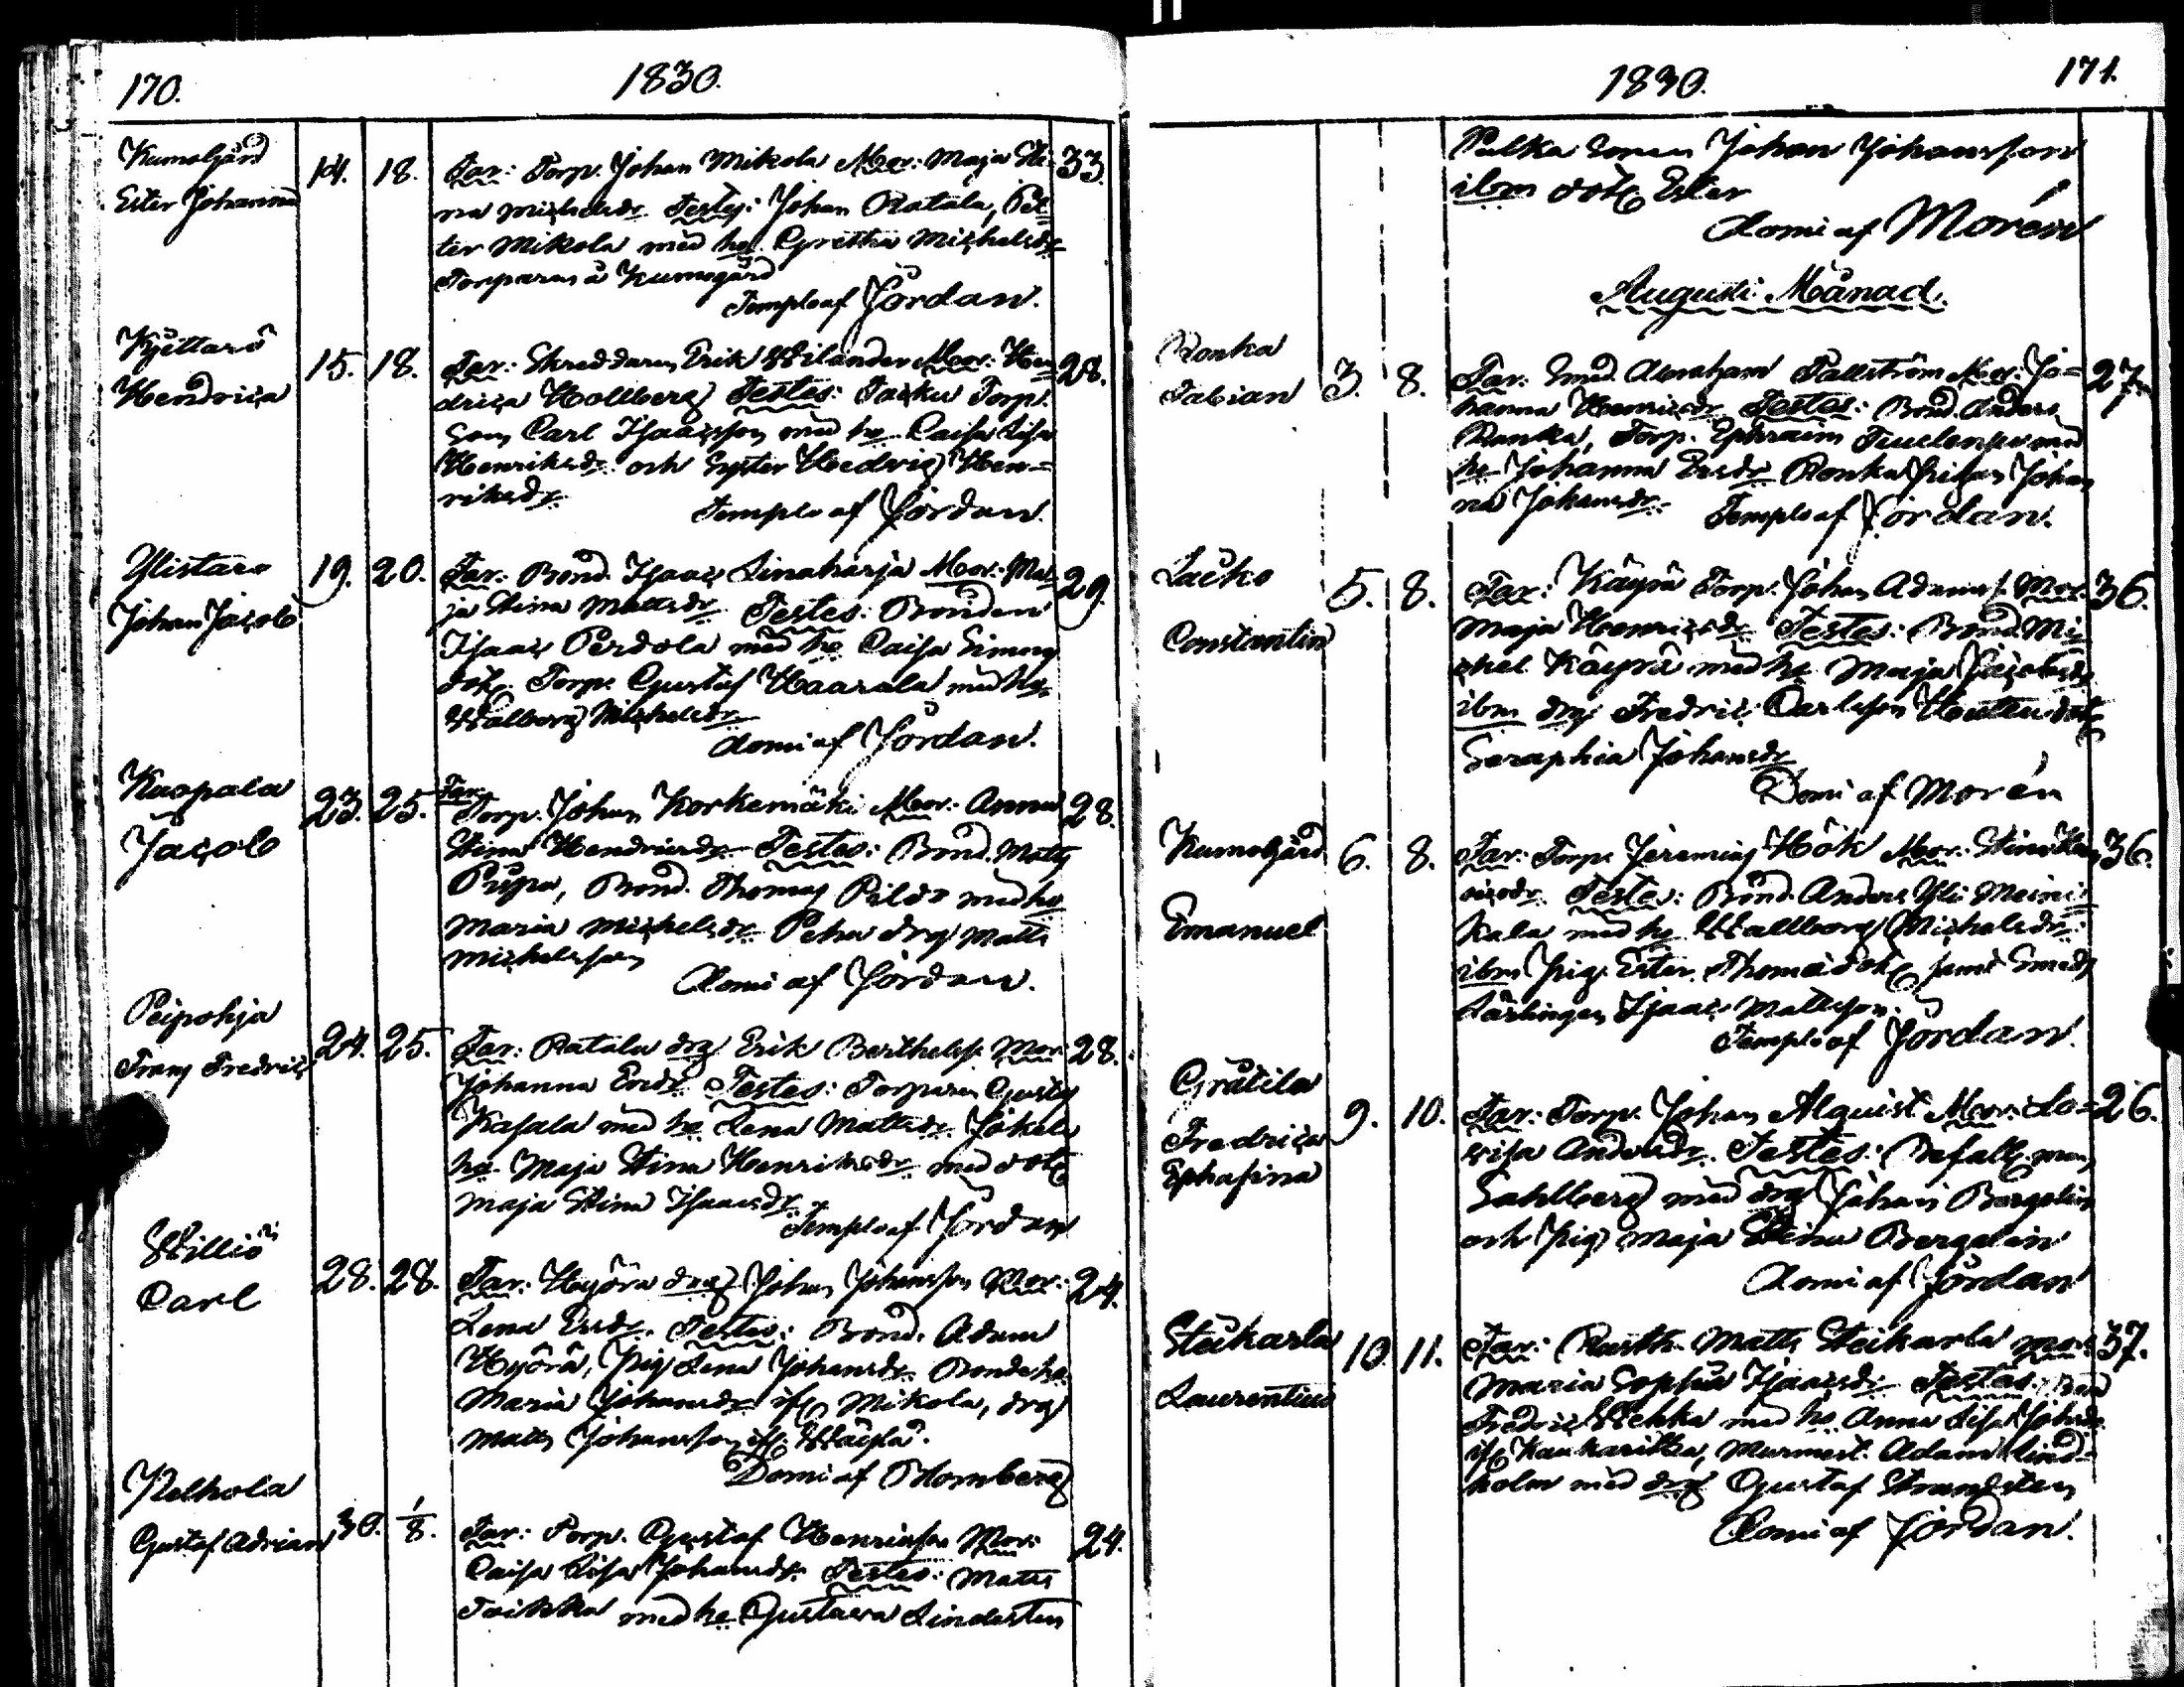 170.
1830.
Kumogård
Ester Johanna
14. 18.
Far: Torp. Johan Mikola Mor: Maja Sti-
33.
na Michelsdr. Testes: Johan Ratala, Pet-
ter Mikola med hu. Gretha Michelsdr
Torparen å Kumogård
Templo af Jördan.
Kjettarö
Hendrica
15. 18.
Far: Skreddaren Erik Wilander Mor: Hen-
28.
drica Hollberg Testes: Torp.
Son Carl Isaacsson med hu Caisa Lisa
Henriksdr. och Syster Hedvig Hen-
riksdr.
Templo af Jördan.
Ylistaro
Johan Jacob
19. 20.
Far: Bond. Isaac Linaharja Mor: Ma-
29.
ja Stina Mattsdr. Testes: Bonden
Isaac Perdola med hu Caisa Simons
dotr. Torp. Gustaf Haarala med hu.
Walborg Michelsdr
domi af Jördan.
Kuopala
Jacob
23. 25.
Far:
Torp. Johan Korkemäki Mor: Anna
28.
Stina Hendricsdr. Testes: Bond. Matts
Bond. Thomas Pildo med hu
Maria Michelsdr. drg Matts
Michelsson
domi af Jördan.
Peipohja
Frans Fredric
24. 25.
Far: Ratala drg Erik Berthelss. Mor:
28.
Johanna Ersdr. Testes: Torparen Gustaf
Kasala med hu Lena Mattsdr. Jokela
hu. Maja Stina Henriksdr med dotr
Maja Stina Isaacsdr.
Templo af Jördan
Williö
Carl
28. 28.
Far: Hyörä drg Johan Johansson Mor:
24.
Lena Ersdr. Testes: Bond. Adam
Hyörä, Pig Lena Johansdr. Bonde hu.
Maria Johansdr. ifr Mikola, drg
Matts Johansson ifr
Domi af Blomberg
Kelhola
Gustaf Adrian
30. 1/8.
Far: Torp. Gustaf Henricsson Mor:
24.
Caisa Lisa Johansdr. Testes: Matts
Toikka med hu Gustava Lindsten
1830.
171.
Pulka Sonen Johan Johansson
ibm dotr Ester
domi af Morén
Augusti Månad.
Ronka
Fabian
3. 8.
Far: Smed. Abraham Fallström Mor: Jo-
27.
hanna Henricsdr Testes: Bond. Anders
Ronka, Torp. Ephraim med
hu Johanna Ersdr Ronka Pigan Johan
na Johansdr.
Templo af Jördan.
Lacko
Constantin
5. 8.
Far: Käyrä Torp. Johan Adams. Mor.
36.
Maja Henricsdr Testes: Bond. Mi-
chel Käyrä med hu Maja Jacobsdr
ibm drg Fredric Carlsson dotr
Seraphia Johansdr
Domi af Morén
Kumogård
Emanuel
6. 8.
Far: Torp. Jeremias Hök Mor: Stina Hen
36.
ricsdr. Testes: Bond. Anders Yli Meini-
kala med hu Wallborg Michelsdr.
ibm Pig. Ester Thomædotr samt Smeds
Lärlingen Isaac Mattsson.
Templo af Jördan.
Gråtila
Fredrica
Ephasina
9. 10.
Far: Torp. Johan Alquist Mor: Lo-
26.
visa Andersdr. Testes: Befalln. man
Sahlberg med drg Johan Bergelin
och Pig Maja Stina Bergelin
domi af Jördan
Steikarla
Laurentius
10. 11.
Far: Rusth. Matts Steikarla Mor:
37.
Maria Sophia Isaacsdr. Testes: Bond
Fredric Wehka med hu Anna Lisa Johsdr.
ifr Kaukaritka, Murmest. Adam Lind-
holm med drg Gustaf Strandsten
Domi af Jördan.